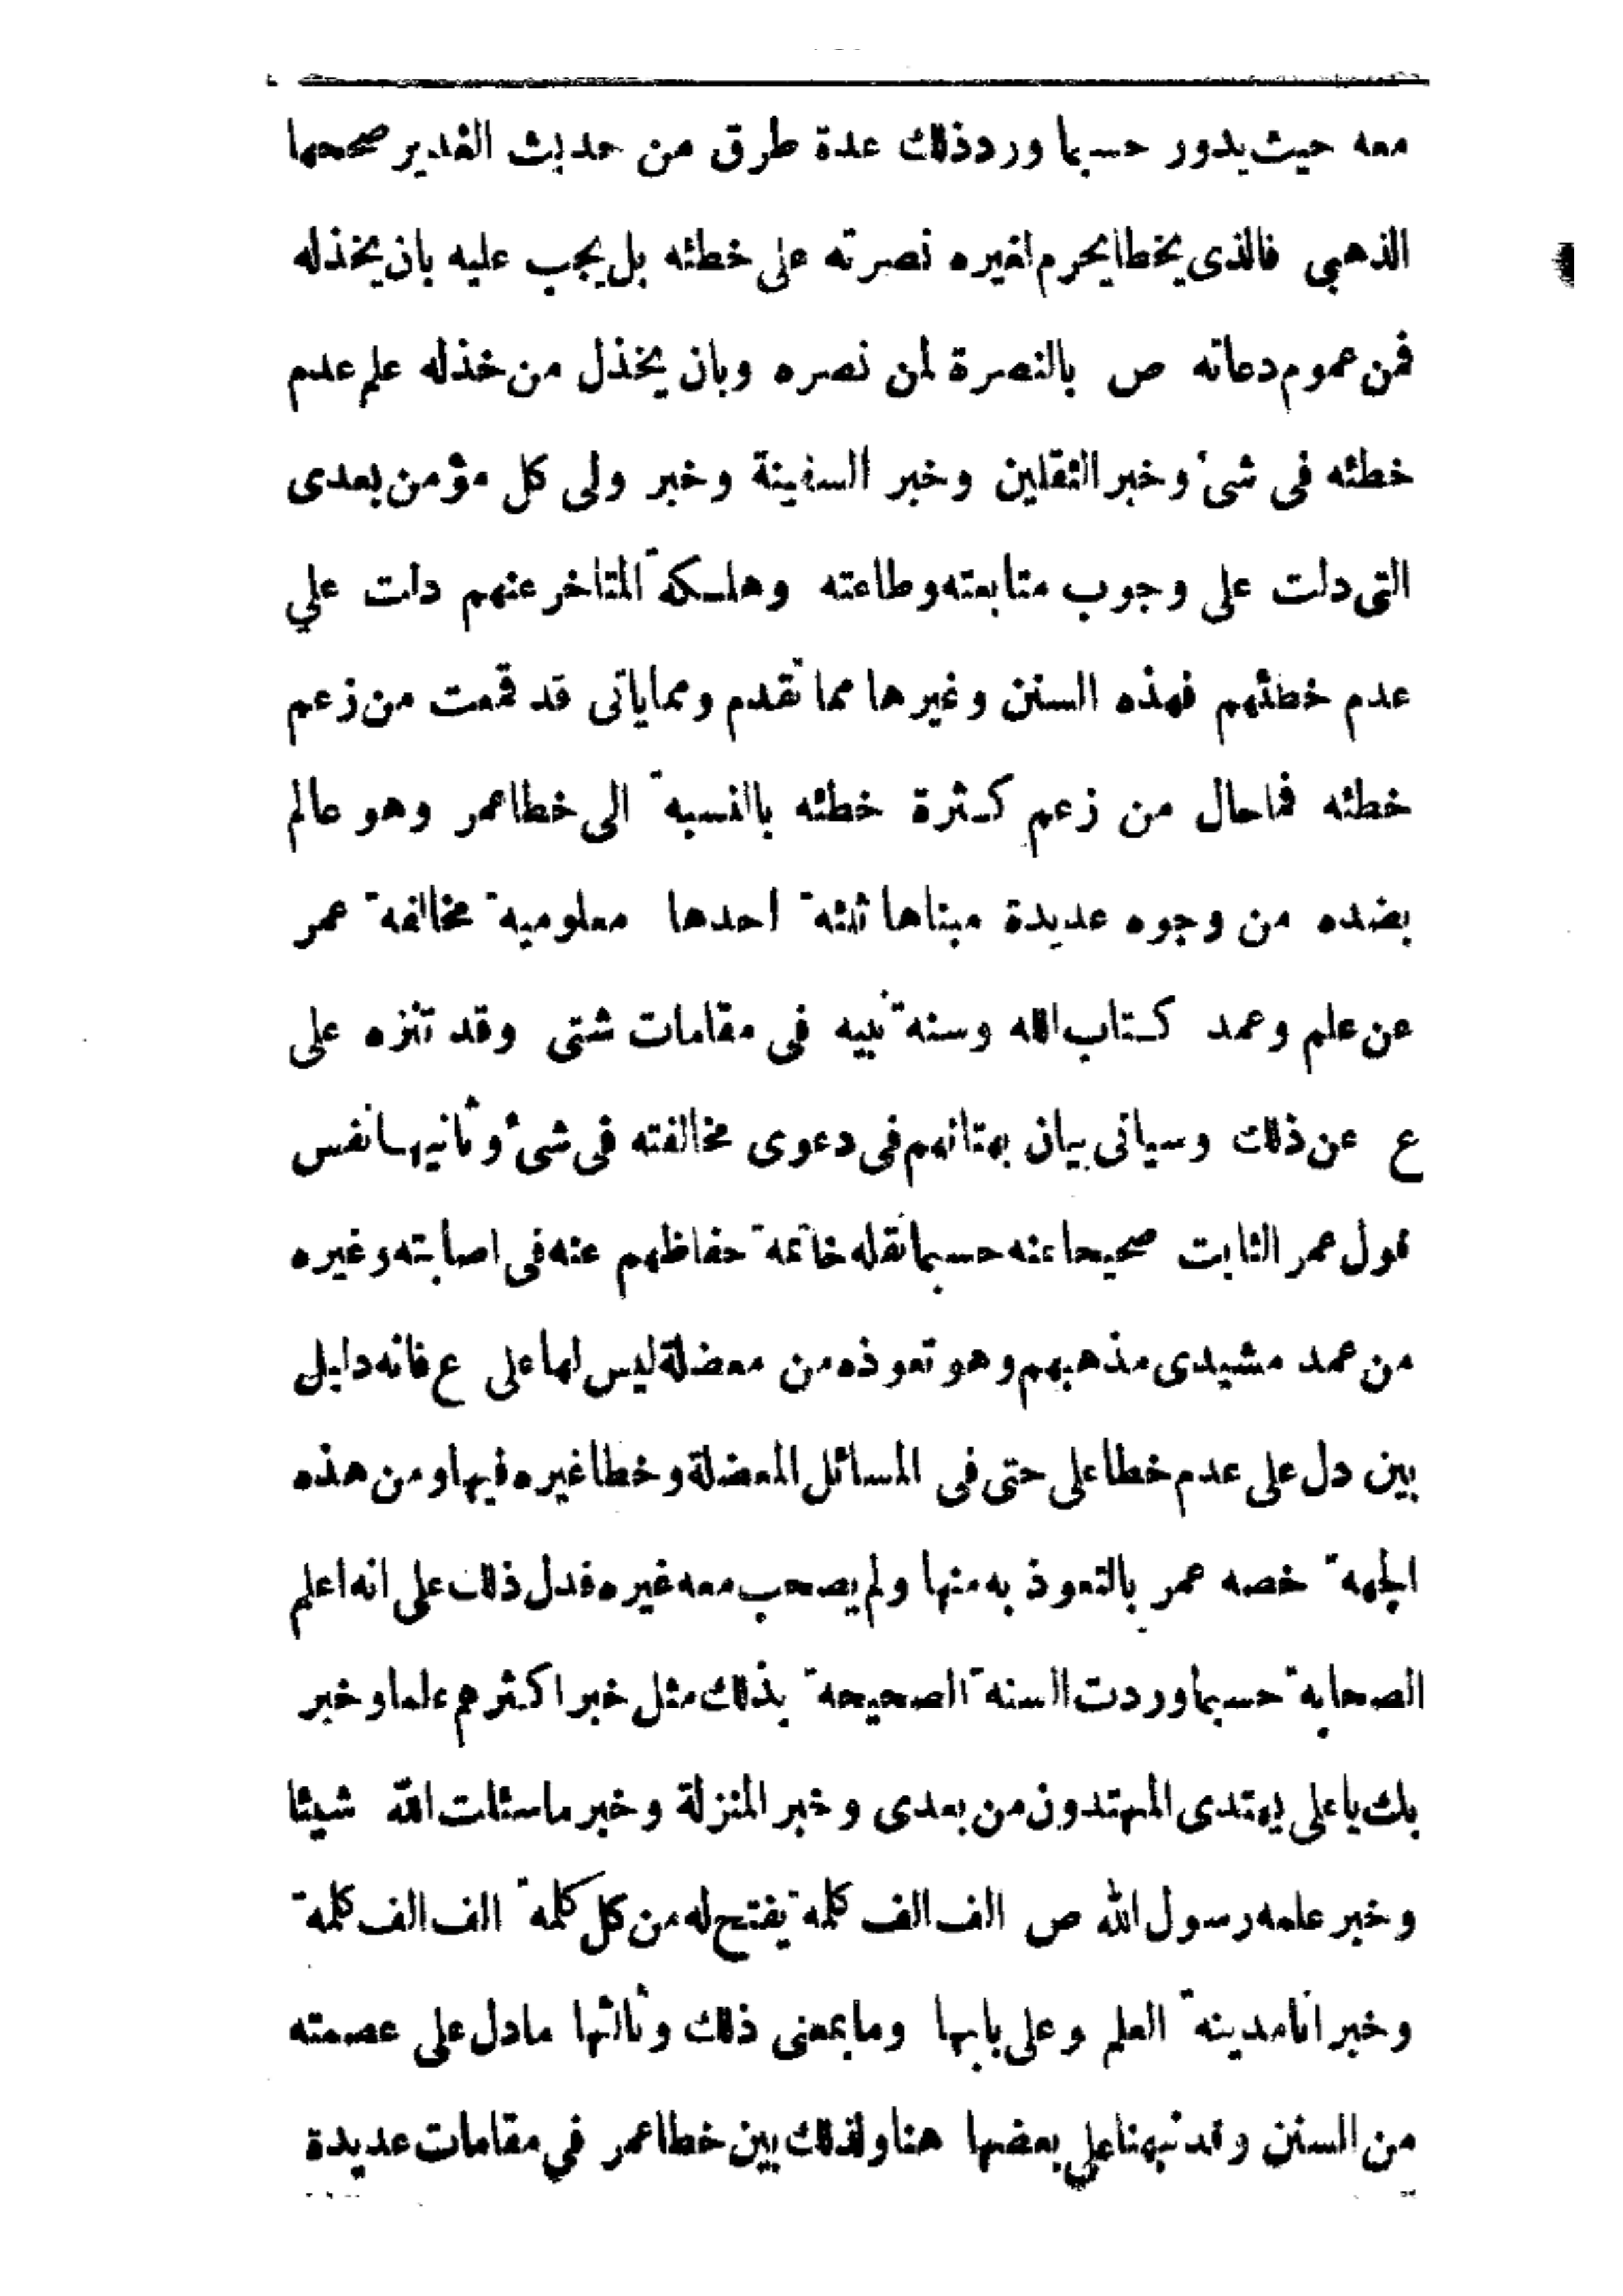 معه حيث يدور حسبما ورد ذلك عدة طرق من حديث الغدير صححها
الذهبي فالذى يخطا يحرم لغيره نصرته على خطئه بل يجب عليه بان يخذله
فمن عموم دعائه ص بالنصرة لمن نصره وبان يخذل من خذله علم عدم
خطئه فى شىء وخبر الثقلين وخبر السفينة وخبر ولى كل مؤمن بعدى
التى دلت على وجوب متابعته وطاعته وهلكة المتاخر عنهم دلت علي
عدم خطئهم فهذه السنن وغيرها مما تقدم ومماياتى قد قمعت من زعم
خطئه فماحال من زعم كثرة خطئه بالنسبة الى خطاعمر وهو عالم
بضده من وجوه عديدة مبناها ثلثة احدها معلومية مخالفة عمر
عن علم وعمد كتاب الله وسنة نبيه فى مقامات شتى وقد تنزه على
ع عن ذلك وسياتى بيان بهتانهم فى دعوى مخالفته فى شىء وثانيها نفس
قول عمر الثابت صحيحا عنه حسبما نقله خاتمة حفاظهم عنه فى اصابته وغيره
من عمد مشيدى مذهبهم وهو تعوذه من معضلة ليس لها على ع فانه دليل
بين دل على عدم خطا على حتى فى المسائل المعضلة وخطا غيره فيها ومن هذه
الجهة خصه عمر بالتعوذ به منها ولم يصحب معه غيره فدل ذلك على انه اعلم
الصحابة حسبما وردت السنة الصحيحة بذلك مثل خبر اكثرهم علما وخبر
بك يا على يهتدى المهتدون من بعدى وخبر المنزلة وخبر ما سئلت الله شيئا
وخبر علمه رسول الله ص الف الف كلمة يفتح له من كل كلمة الف الف كلمة
وخبر انا مدينة العلم وعلى بابها وما بمعنى ذلك وثالثها مادل على عصمته
من السنن وقد نبهنا علي بعضها هنا ولذلك بين خطا عمر في مقامات عديدة